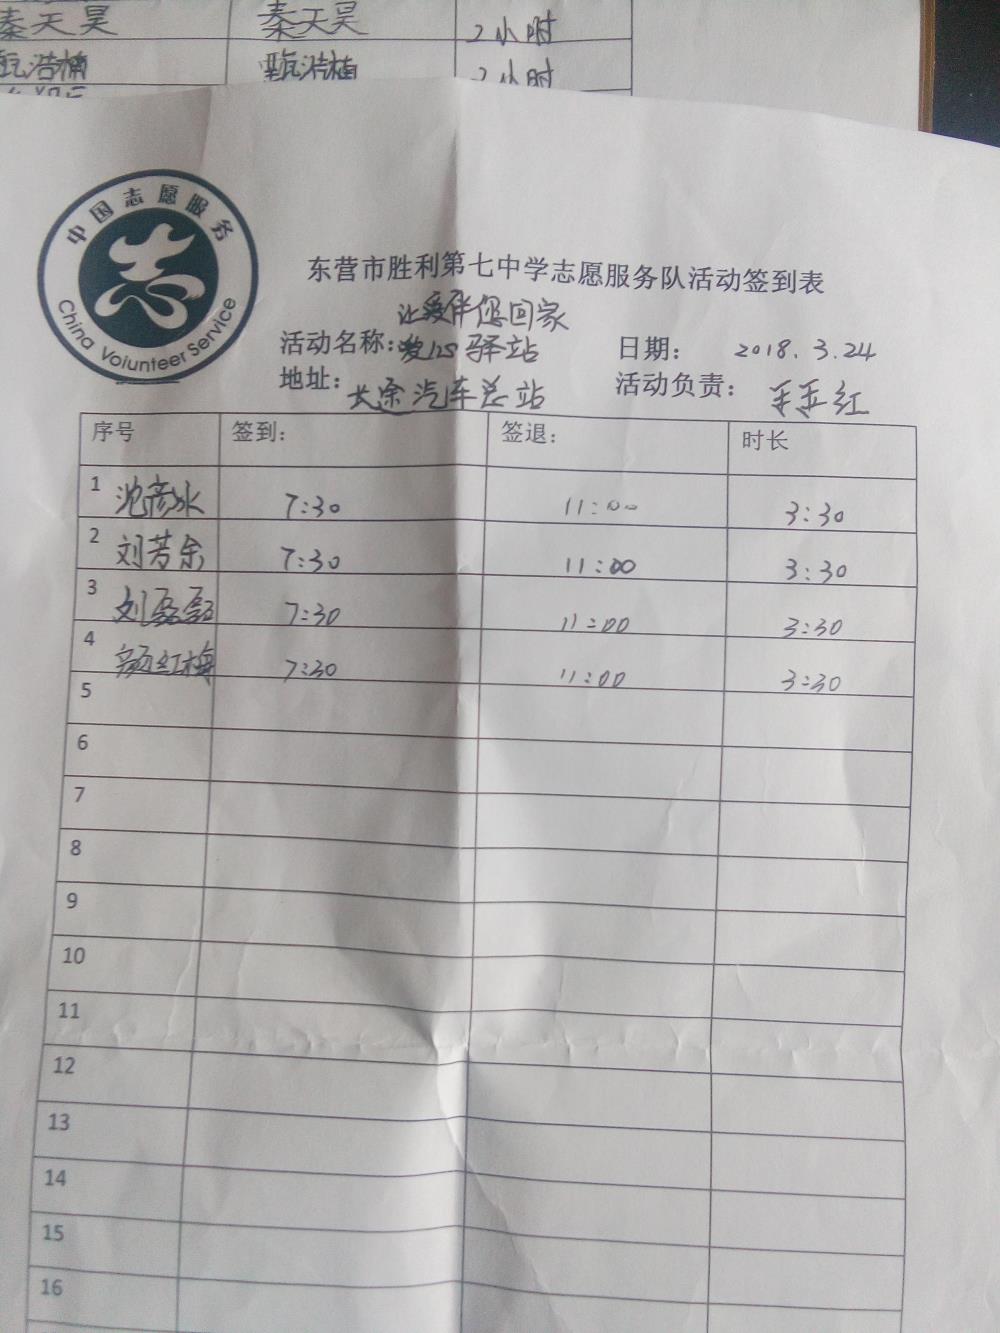 秦天昊 秦天昊 2小时
甄浩楠 甄浩楠 2小时
中国志愿服务
China Volunteer Service
东营市胜利第七中学志愿服务队活动签到表
让爱伴您回家
活动名称：爱心驿站 日期： 2018.3.24
地址：长途汽车总站 活动负责： 王亚红
序号 签到： 签退： 时长
1 沈彦冰 7:30 11:00 3:30
2 刘芳余 7:30 11:00 3:30
3 刘磊磊 7:30 11:00 3:30
4 颜红梅 7:30 11:00 3:30
5
6
7
8
9
10
11
12
13
14
15
16